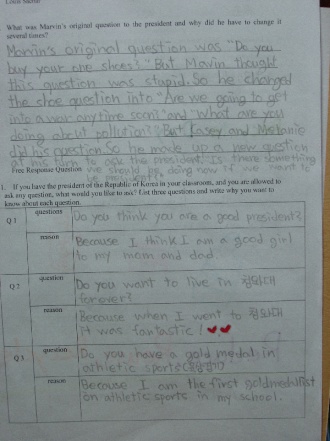 What was Marvin's original question to the president and why did he have to change it
several times?
Marvin's original question was "Do you
buy your one shoes?" But Mavin thought
this question was stupid. So he changed
the shoe question into "Are we going to get
into a war anytime soon?" and "What are you
doing about pollution?" But Kasey and Melanie
did his question. So he made up a new question
at his turn to ask the president. Is there something
Free Response Question we should be doing now if we want to
be
1. If you have the president of the Republic of Korea in your classroom, and you are allowed to
ask any question, what would you like to ask? List three questions and write why you want to
know about each question.
Q 1 questions Do you think you are a good president?
reason Because I think I am a good girl
to my mom and dad.
Q 2 question Do you want to live in 청와대
forever?
reason Because when I went to 청와대
it was fantastic! ♥♥
Q 3 question Do you have a gold medal in
athletic sports
reason Because I am the first goldmedalist
on athletic sports in my school.